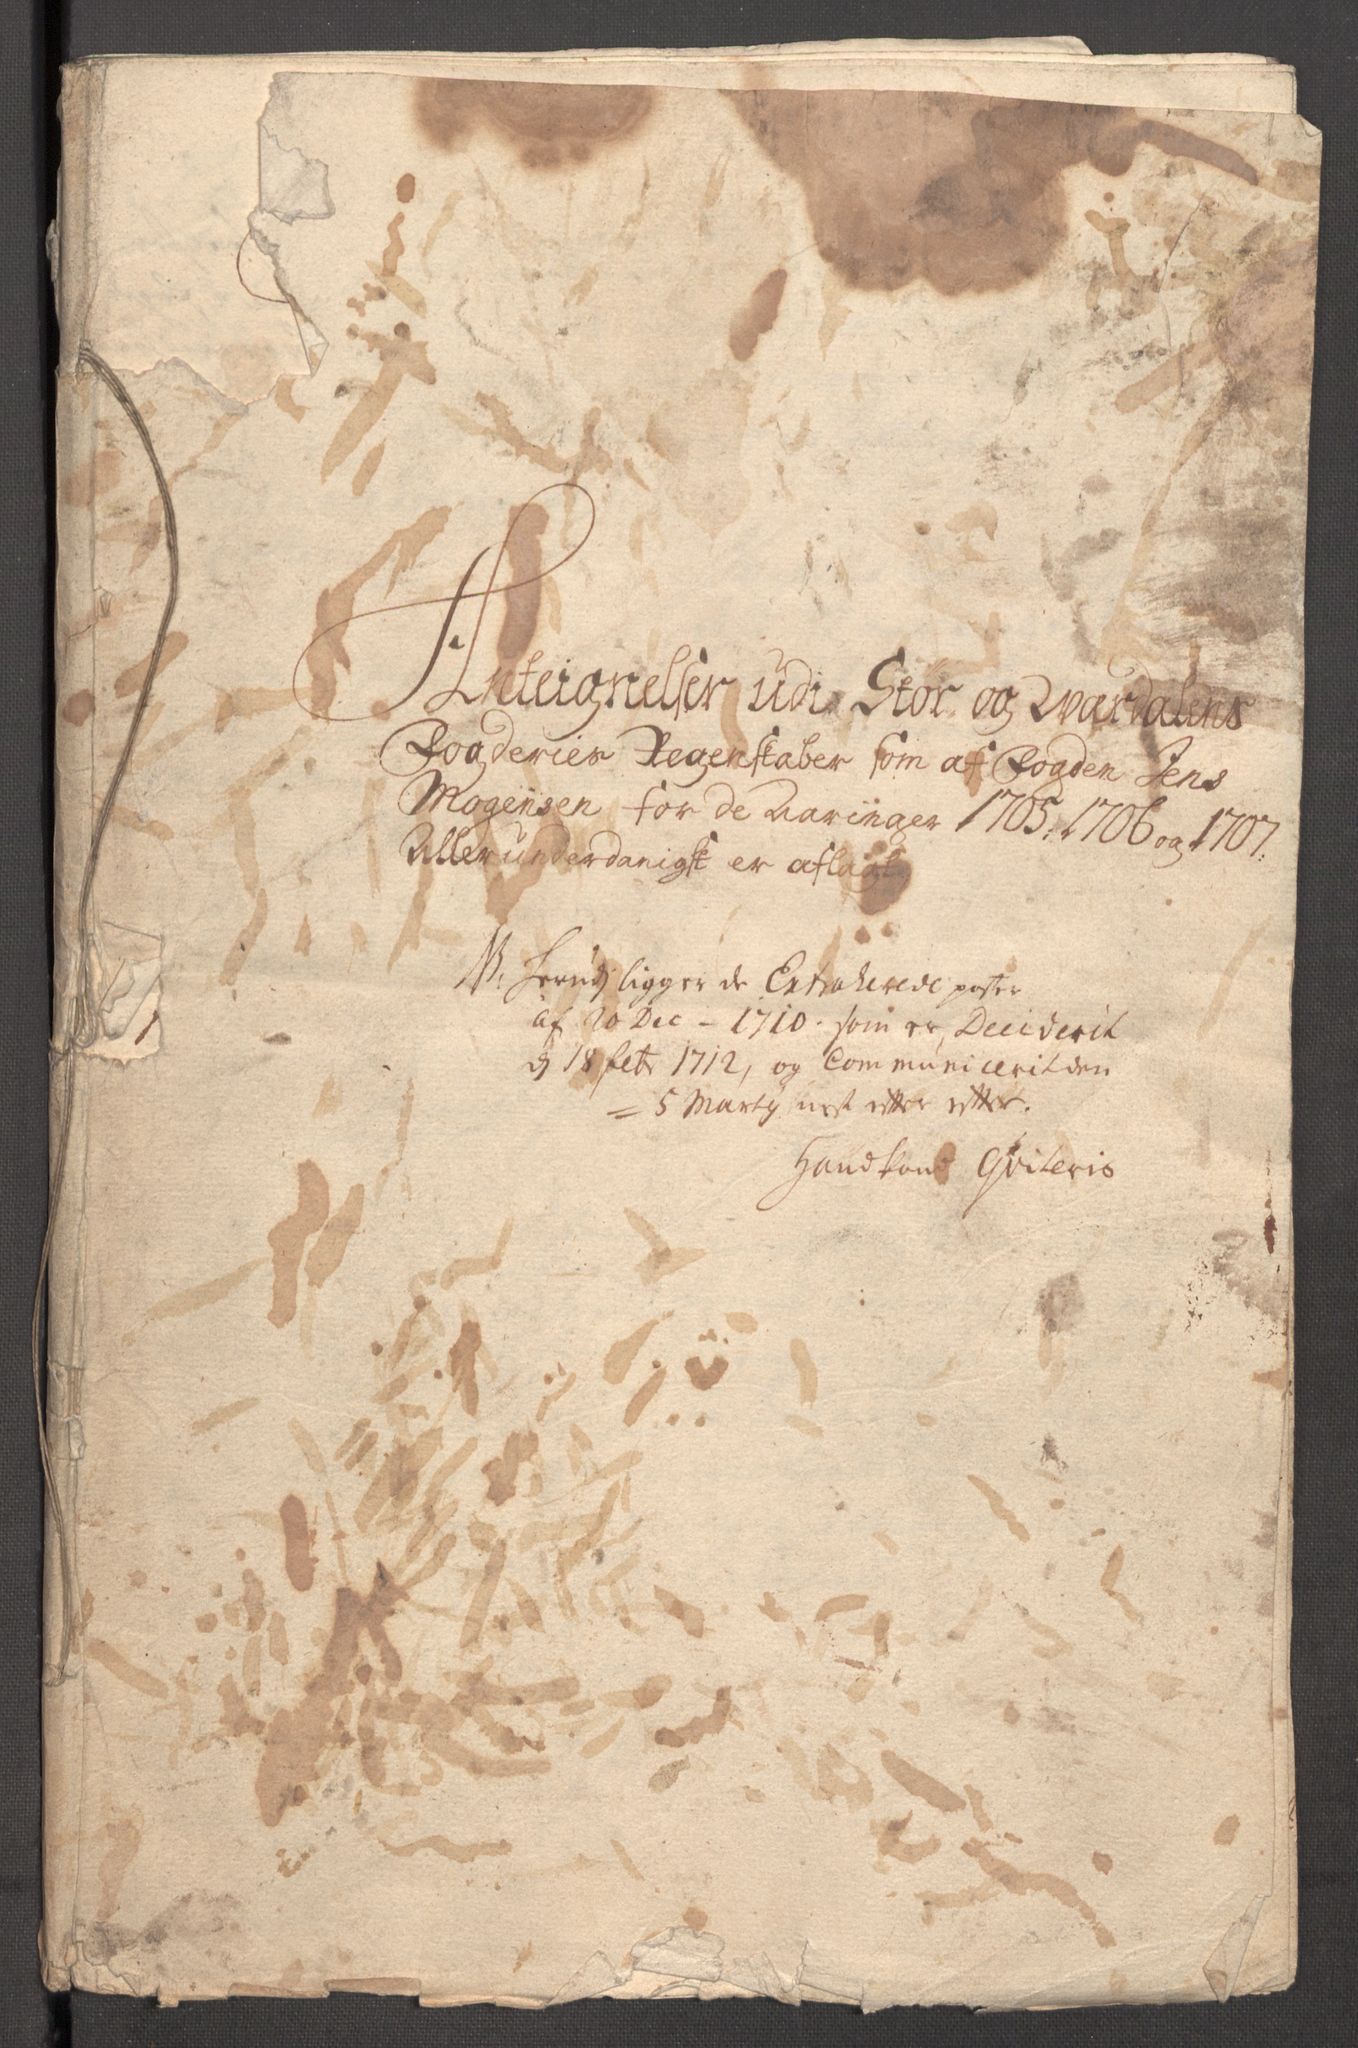 Anteignelser udi Stör og Wærdalens
Fogderies Regenskaber som af Fogden Jens
Mogensen for de Aaringer 1705, 1706 og 1707.
Allerunderdanigst er aflagt
NB. herudj ligger de Extraherede poster
af 20 Dec - 1710. som er, Deciderit
dj 18 feb. 1712, og Communicerit den
= 5 Martij nest efter efter.
Qviteris